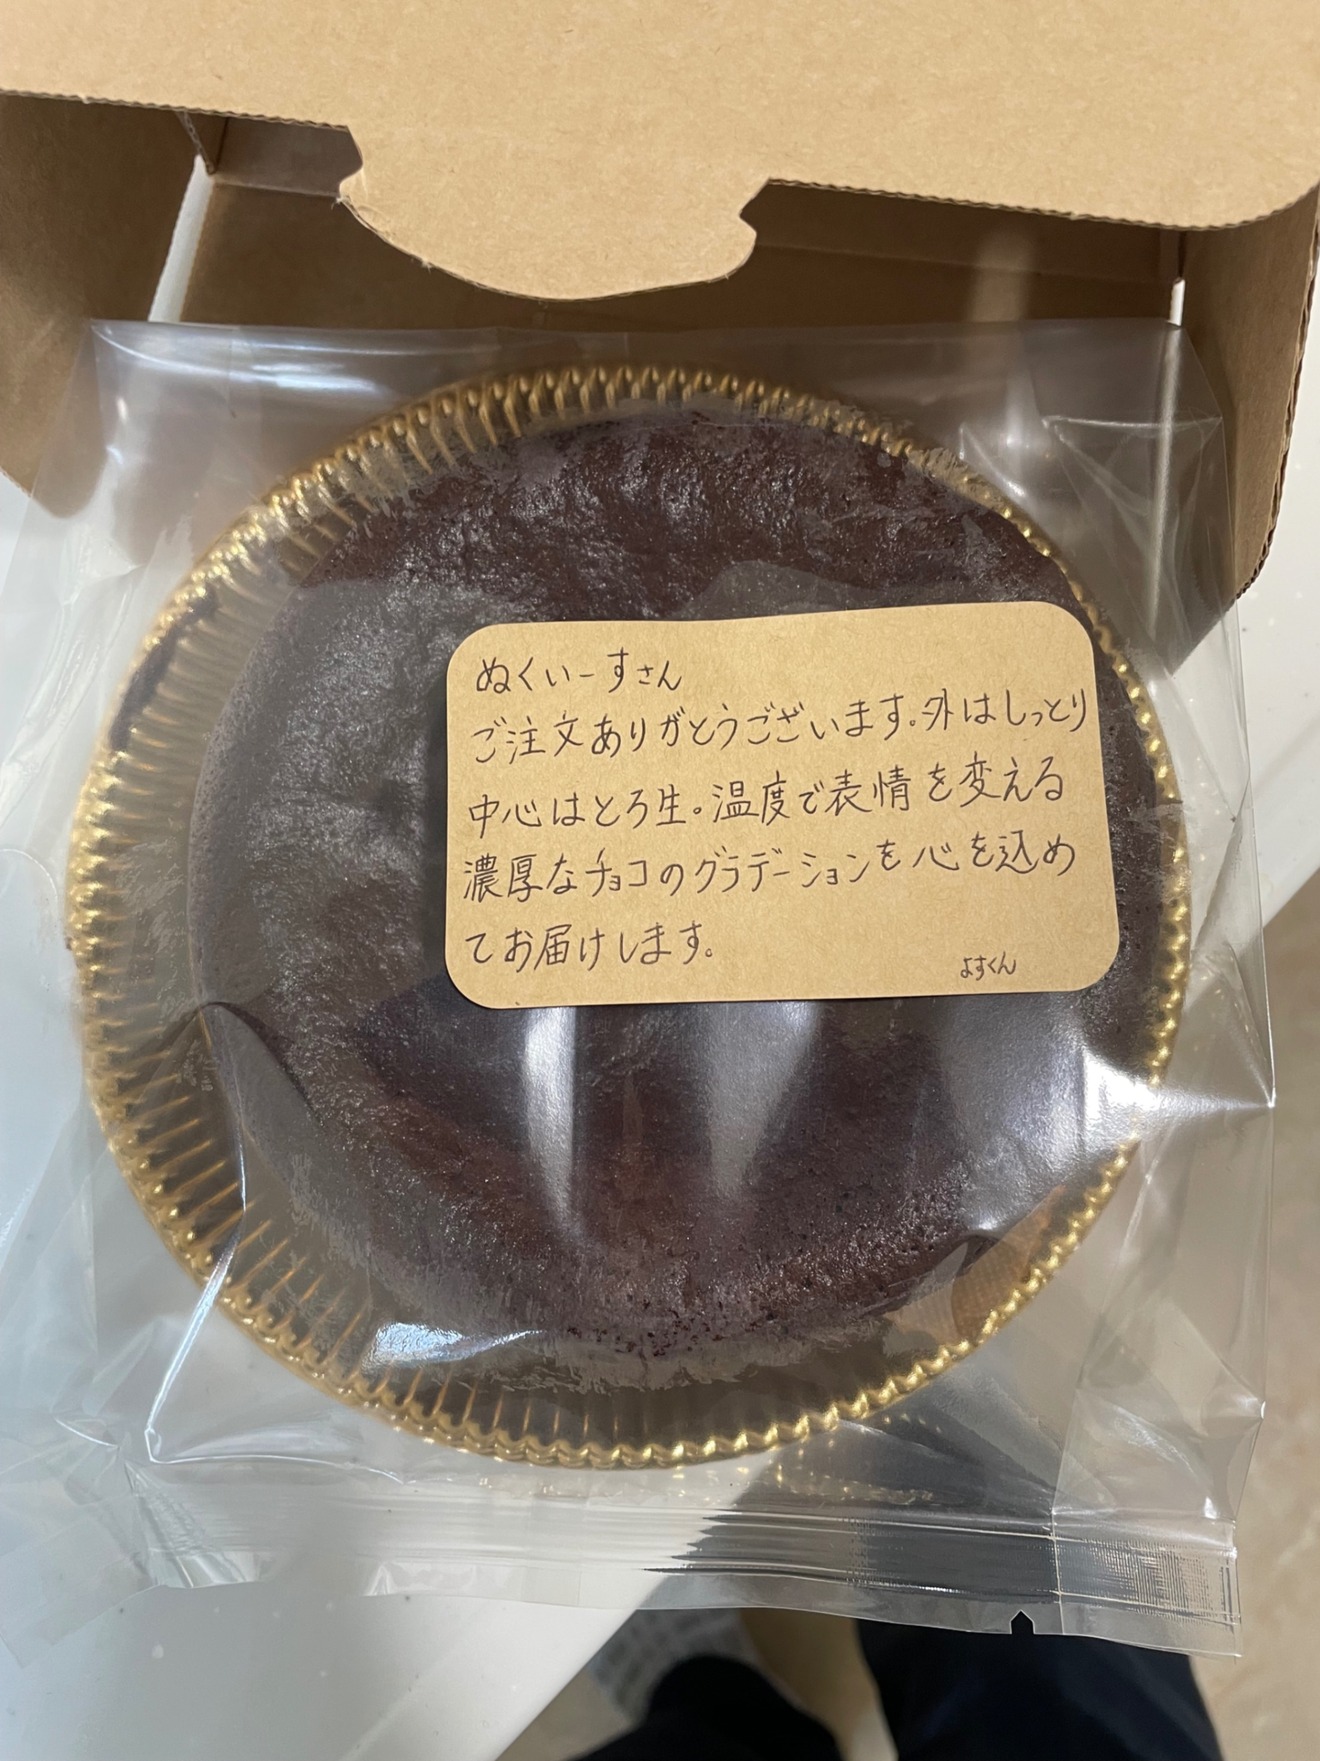 ぬくいーすさん
ご注文ありがとうございます。外はしっとり
中心はとろ生。温度で表情を変える
濃厚なチョコのグラデーションを心を込め
てお届けします。
よすくん